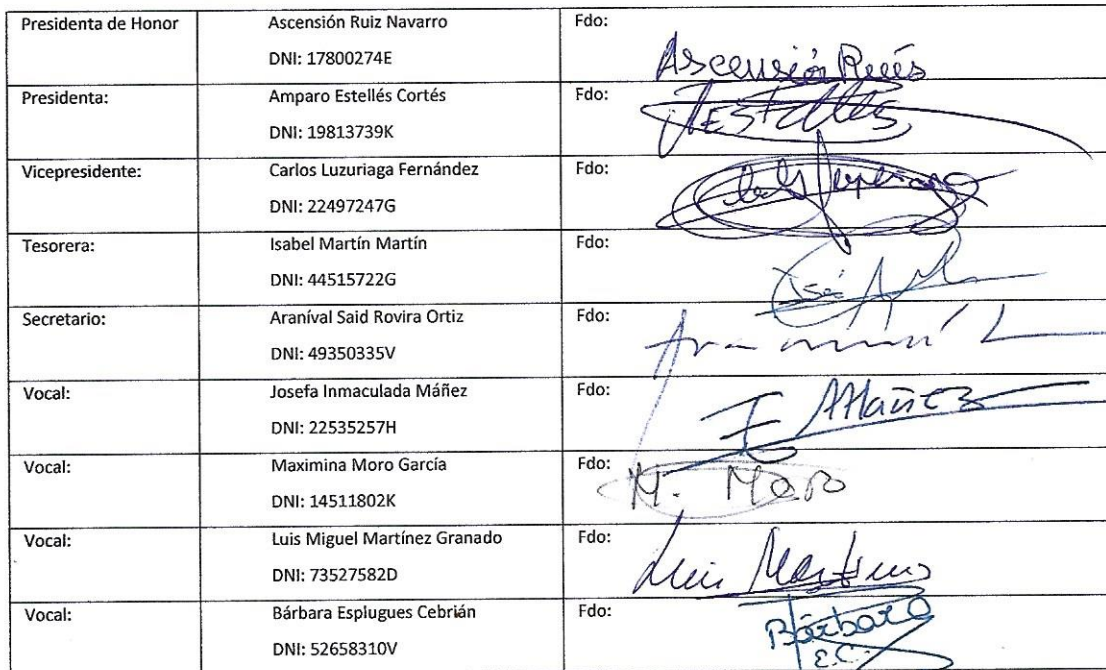 Presidenta de Honor
Ascensión Ruiz Navarro
DNI: 17800274E
Fdo:
Ascensión Ruiz
Presidenta:
Amparo Estellés Cortés
DNI: 19813739K
Fdo:
Estellés
Vicepresidente:
Carlos Luzuriaga Fernández
DNI: 22497247G
Fdo:
Tesorera:
Isabel Martín Martín
DNI: 44515722G
Fdo:
Secretario:
Araníval Said Rovira Ortiz
DNI: 49350335V
Fdo:
Vocal:
Josefa Inmaculada Máñez
DNI: 22535257H
Fdo:
Máñez
Vocal:
Maximina Moro García
DNI: 14511802K
Fdo:
M. Moro
Vocal:
Luis Miguel Martínez Granado
DNI: 73527582D
Fdo:
Luis Martínez
Vocal:
Bárbara Esplugues Cebrián
DNI: 52658310V
Fdo:
Bárbara
E.C.